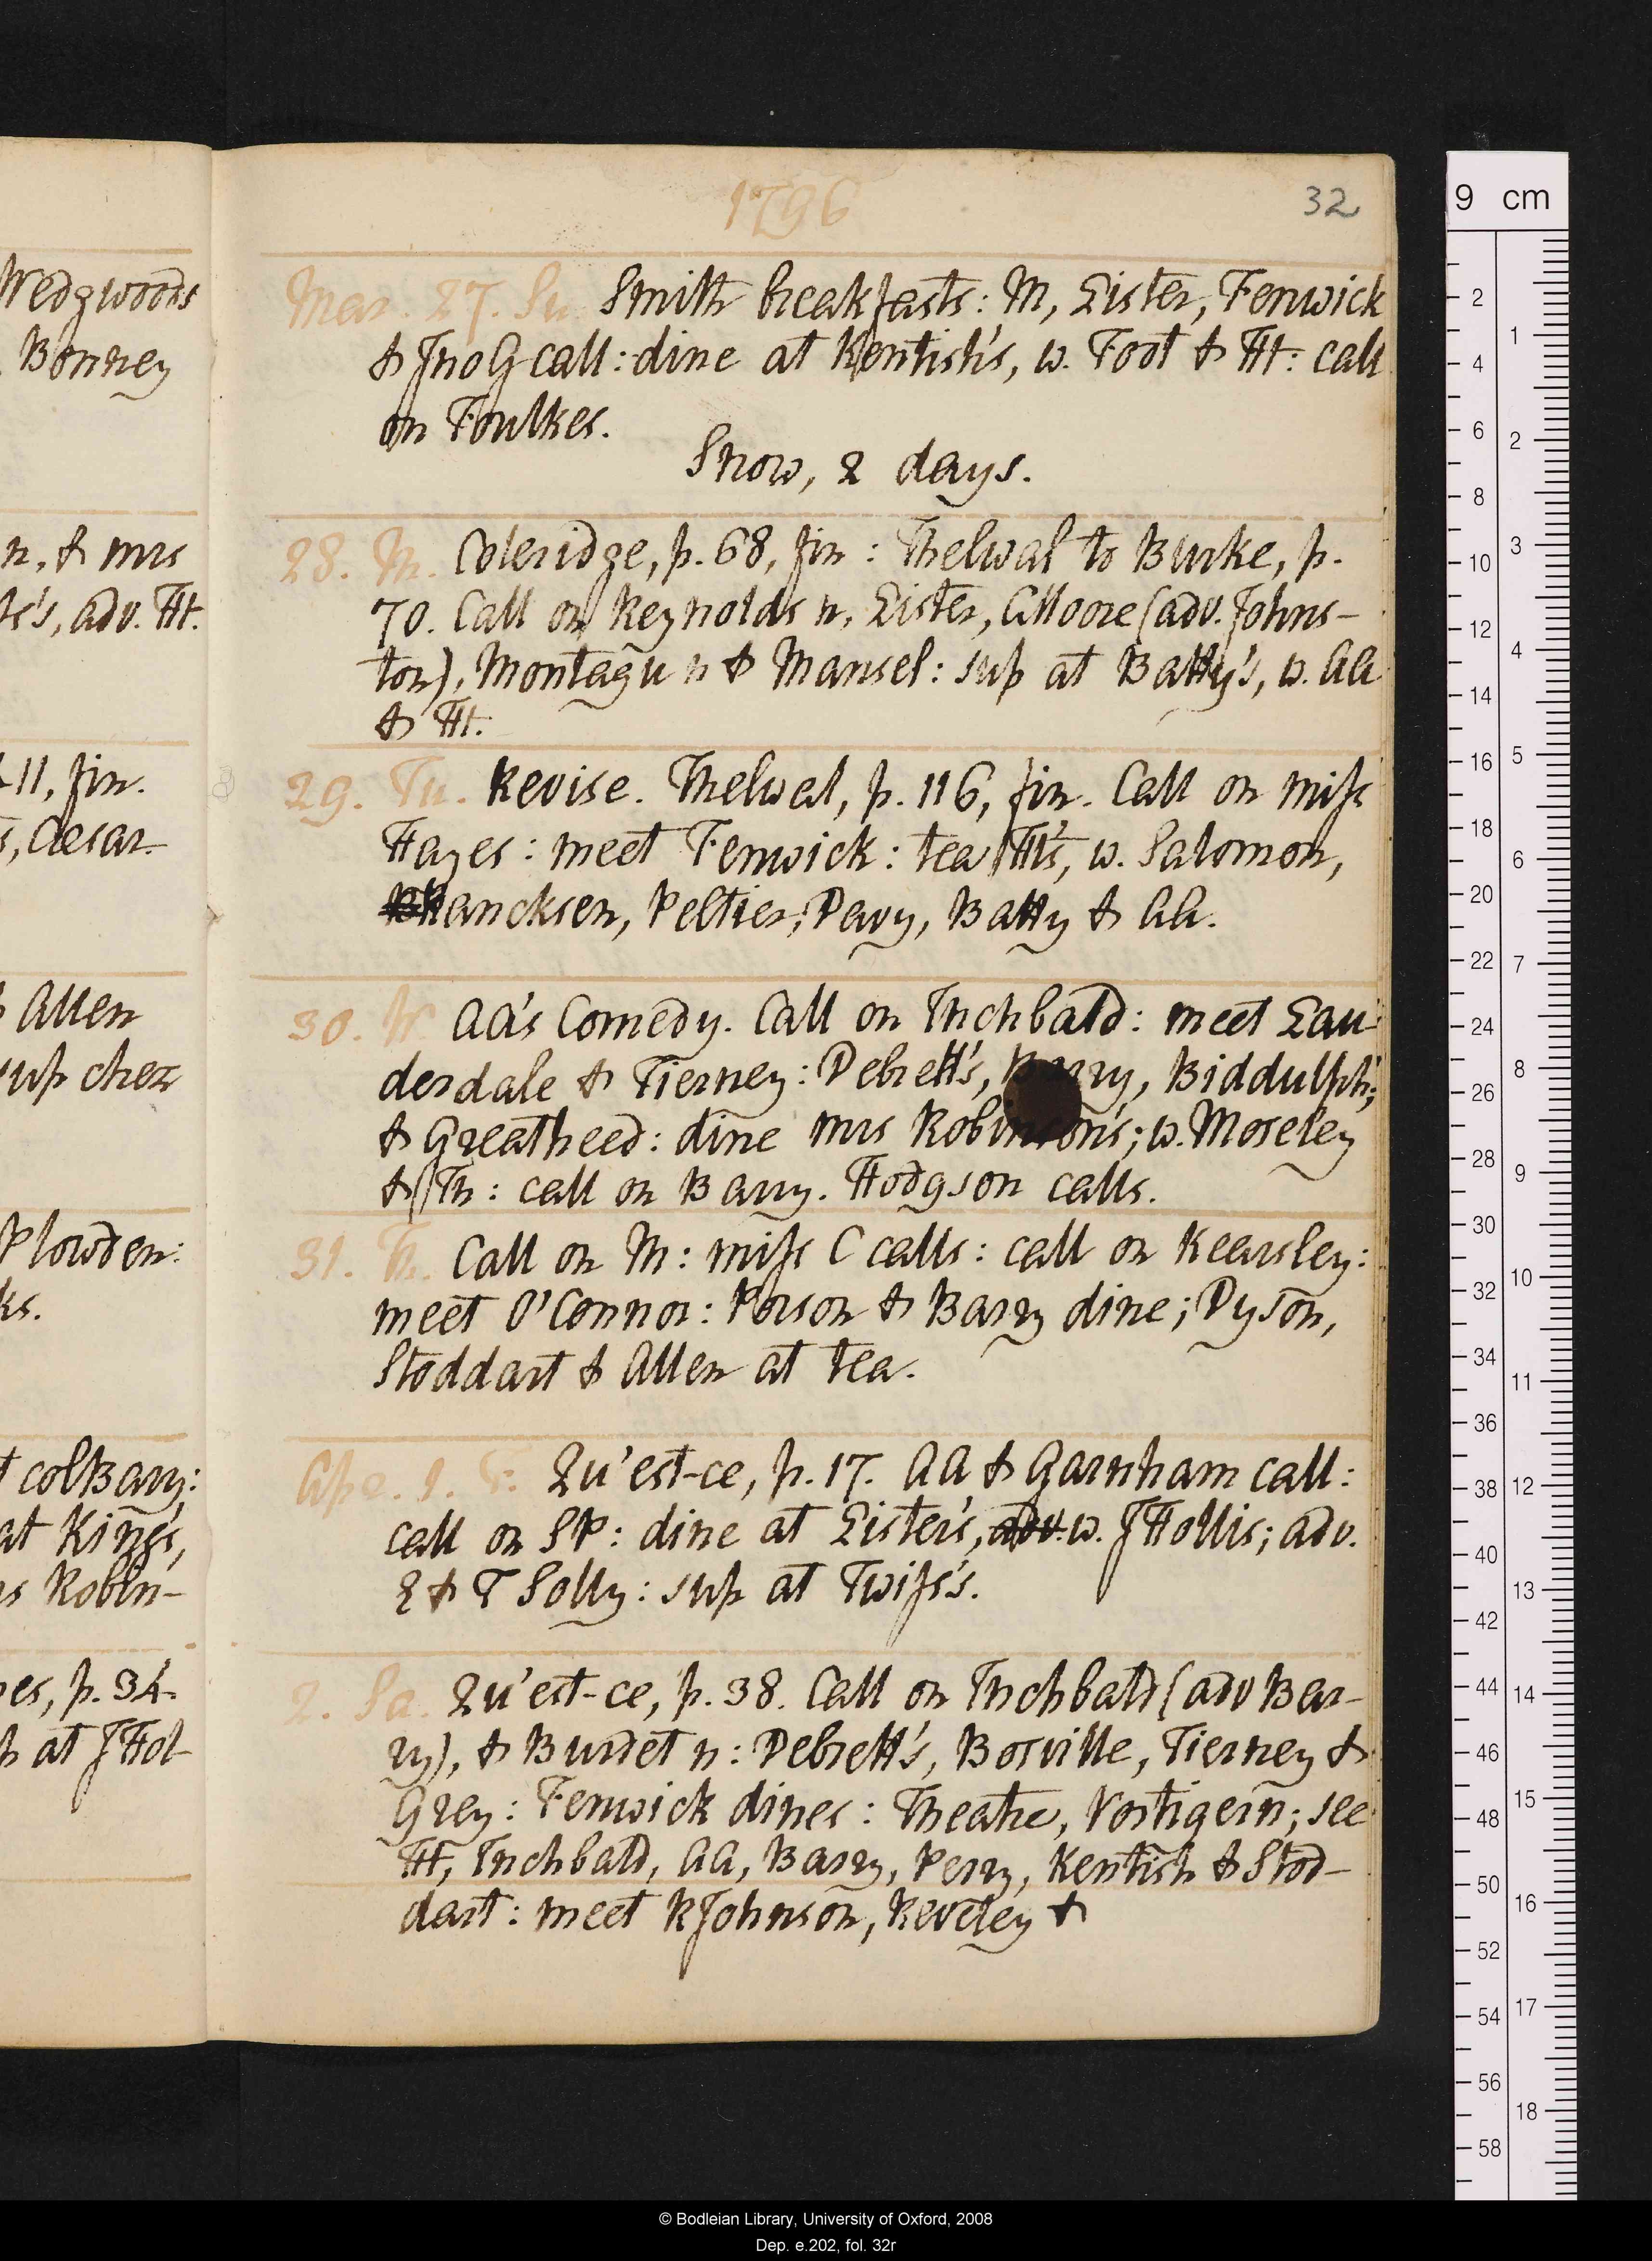 Wedgwoods
Bonney
n, & mrs
ks's, adv. Ht.
11, fin.
s, Caesar
Allen
sup chez
Plowden:
ks.
t colBarry:
at King's,
rs Robin-
es, p. 34.
at JHol-
1796
32
Mar. 27. Su. Smith breakfasts: M, Lister, Fenwick
& JnoG call: dine at Kentish's, w. Foot & Ht: call
on Foulkes.
Snow, 2 days.
28. M. Coleridge, p. 68, fin: Thelwal to Burke, p.
70. Call on Reynolds n, Lister, GMoore (adv. Johns-
ton), Montagu n & Mansel: sup at Batty's, w. AA
& Ht.
29. Tu. Revise. Thelwal, p. 116, fin. Call on miss
Hayes: meet Fenwick: tea Ht's, w. Salomon,
Hancksen, Peltier, Davy, Batty & AA.
30. W. AA's Comedy. Call on Inchbald: meet Lau-
derdale & Tierney: Debrett's, Barry, Biddulph;
& Greatheed: dine mrs Robinson's; w. Moseley
& Th: call on Barry. Hodgson calls.
31. Th. Call on M: miss C calls: call on Kearsley:
meet O'Connor: Porson & Barry dine; Dyson,
Stoddart & Allen at tea.
Apr. 1. F. Qu'est-ce, p. 17. AA & Garnham call:
call on SP: dine at Lister's, adv. w. JHollis; adv.
L & T Solly: sup at Twiss's.
2. Sa. Qu'est-ce, p. 38. Call on Inchbald (adv Bar-
ry), & Burdet n: Debrett's, Bosville, Tierney &
Grey: Fenwick dines: Theatre, Vortigern; see
Ht, Inchbald, AA, Barry, Perry, Kentish & Stod-
dart: meet RJohnson, Reveley &
9 cm
2
4
6
8
10
12
14
16
18
20
22
24
26
28
30
32
34
36
38
40
42
44
46
48
50
52
54
56
58
1
2
3
4
5
6
7
8
9
10
11
12
13
14
15
16
17
18
© Bodleian Library, University of Oxford, 2008
Dep. e.202, fol. 32r